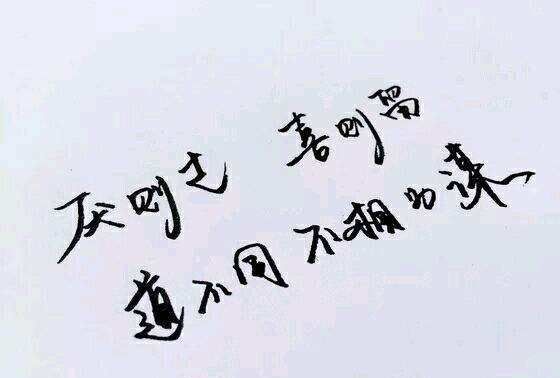 厌则走 喜则留
道不同不相为谋